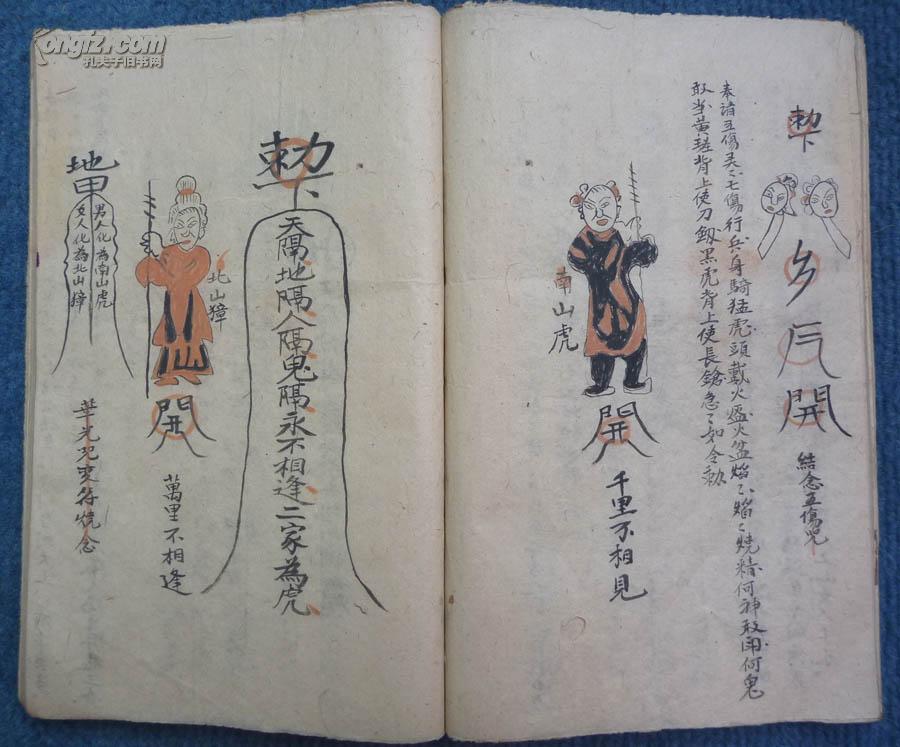 勅下
開
結念五傷咒
奉請五傷灵〻七傷行兵身騎猛虎頭載火盔火盆焰〻焰〻燒精何神敢
何鬼敢當黃 背上使刀 黑虎背上使長鎗急〻如令勅
南山虎
開
千里不相見
勅下
天隔地隔人隔鬼隔永不相逢二家為虎
北山獐
開
萬里不相逢
男人化為南山虎
女人化為北山獐
華光咒変符燒念
kongfz.com
孔夫子旧书网